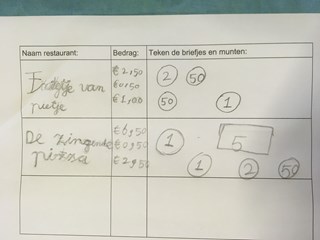 Naam restaurant: Bedrag: Teken de briefjes en munten:
van €2,50 2 50
putje €0,50
€1,00 50 1
De zingende €6,50 1 5
pizza €0,50
€2,50 1 2 50